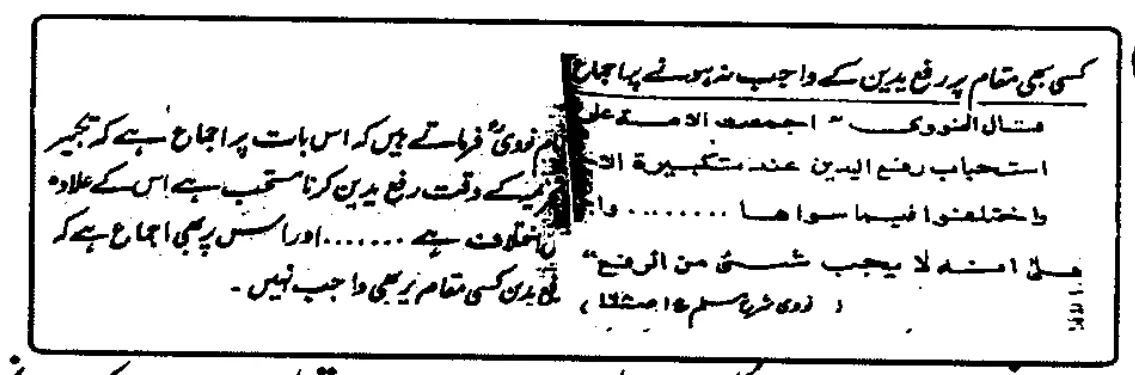 کسی بھی مقام پر رفع یدین کے واجب نہ ہونے پر اجماع
قال النووی " اجمعت الامة علی
استحباب رفع الیدین عند تکبیرة
واختلفوا فیما سواها ........
علی انه لا یجب شئ من الرفع"
نووی شرح مسلم ج ا
نووی فرماتے ہیں کہ اس بات پر اجماع ہے کہ تکبیر
کے وقت رفع یدین کرنا مستحب ہے اس کے علاوہ
اختلاف ہے ....... اور اس پر بھی اجماع ہے کہ
رفع یدین کسی مقام پر بھی واجب نہیں۔